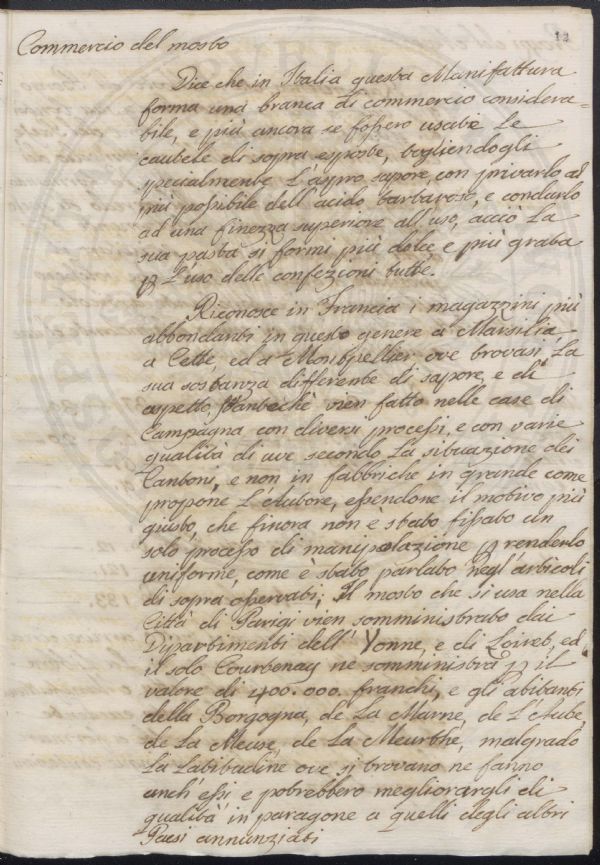 12
Commercio del mosto
Dice che in Italia questa Manifattura
forma una branca di commercio considera=
bile, e più ancora se fossero usate Le
cautele di sopra esposte, togliendogli
specialmente L'aspro sapore, con privarlo al
più possibile dell'acido tartaroso, e condurlo
ad una finezza superiore all'uso, acciò La
sua pasta si formi più dolce e più grata
p L'uso delle confezioni tutte.
Riconosce in Francia i magazzini più
abbondanti in questo genere a Marsilia
a Cette, ed a Montpellier ove trovasi La
sua sostanza differente di sapore, e di
aspetto, stantechè vien fatto nelle case di
Campagna con diversi processi, e con varie
qualità di uve secondo La situazione dei
Cantoni, e non in fabbriche in grande come
propone L'Autore, essendone il motivo più
giusto, che finora non è stato fissato un
solo processo di manipolazione p renderlo
uniforme, come è stato parlato negl'articoli
di sopra osservati; Il mosto che si usa nella
Città di Parigi vien somministrato dai
Dipartimenti dell'Yonne, e di Loiret, ed
il solo Courtenay ne somministra p il
valore di 400.000. franchi, e gli abitanti
della Borgogna, de La Marne, de L'Aube,
de La Meuse, de La Meurthe, malgrado
La Latitudine ove si trovano ne fanno
anch'essi e potrebbero megliorargli di
qualità in paragone a quelli degli altri
Paesi annunziati